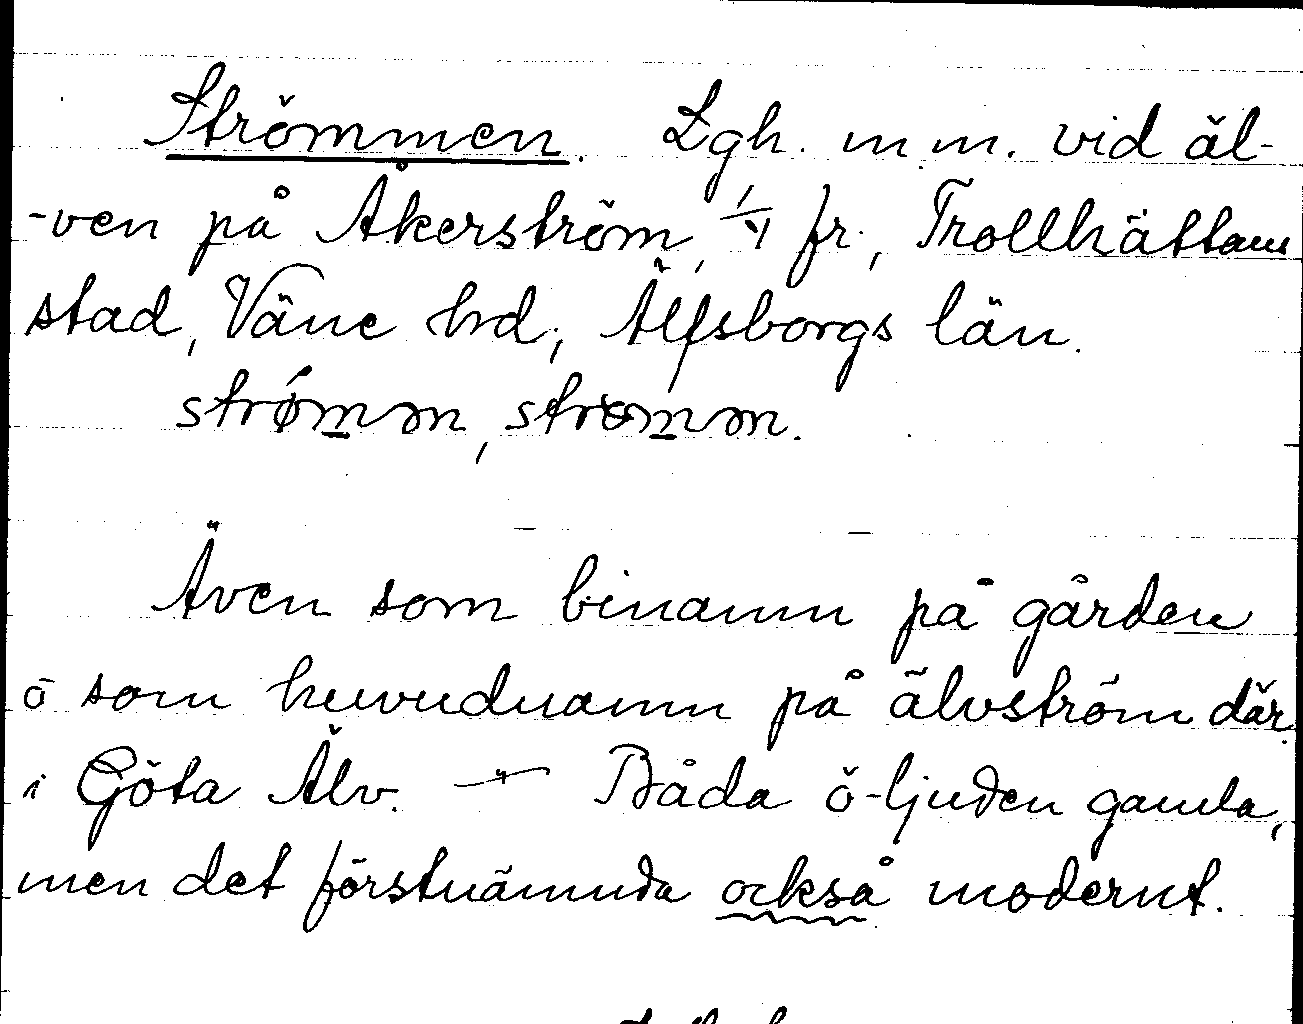 Strömmen. Lgh. m m. vid äl-
-ven på Åkerström, 1/VI fr., Trollhättans
stad, Väne hd, Älfsborgs län.
strømən, strɵmən.
Även som binamn på gården
o som huvudnamn på älvström där
i Göta Älv. — Båda ö-ljuden gamla,
men det förstnämnda också modernt.